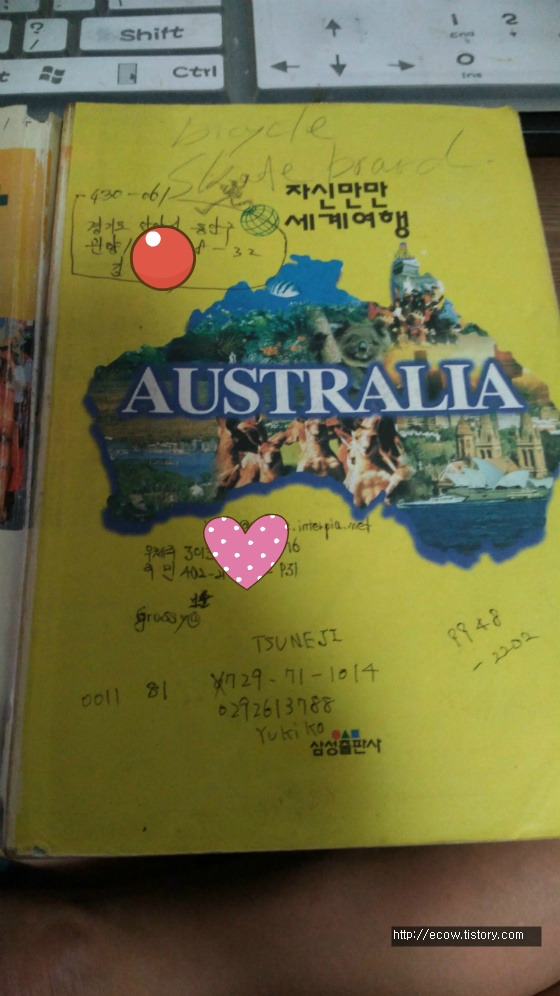 Shift
Ctrl
1
End
2
0
Ins
bicycle
Skate board.
430-061
경기도 안양시 동안구
- 32
자신만만
세계여행
AUSTRALIA
.interpia.net
우체국 3013 16
국민 402-2 - P31
grassy@
TSUNEJI
9948
- 2202
0011 81
729-71-1014
0292613788
Yukiko
삼성출판사
http://ecow.tistory.com